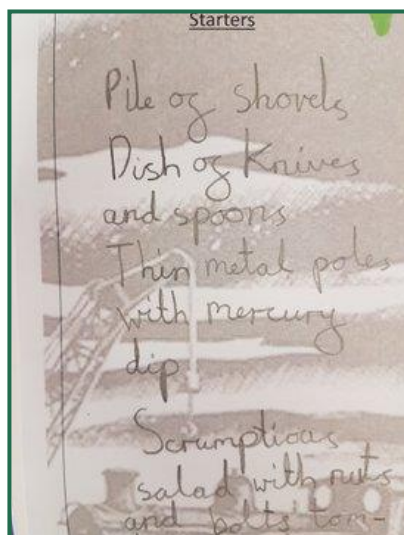 Starters
Pile of shovels
Dish of Knives
and spoons
Thin metal poles
with mercury
dip
Scrumptious
salad with nuts
and bolts tom-